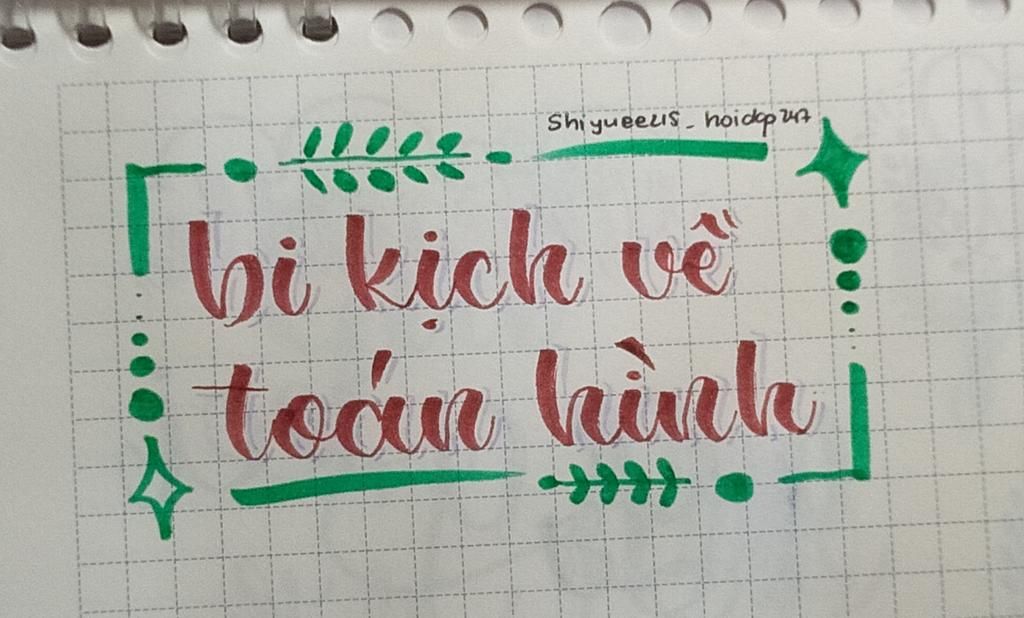 Shiyueeus_hoidap247
bi kịch về
toán hình